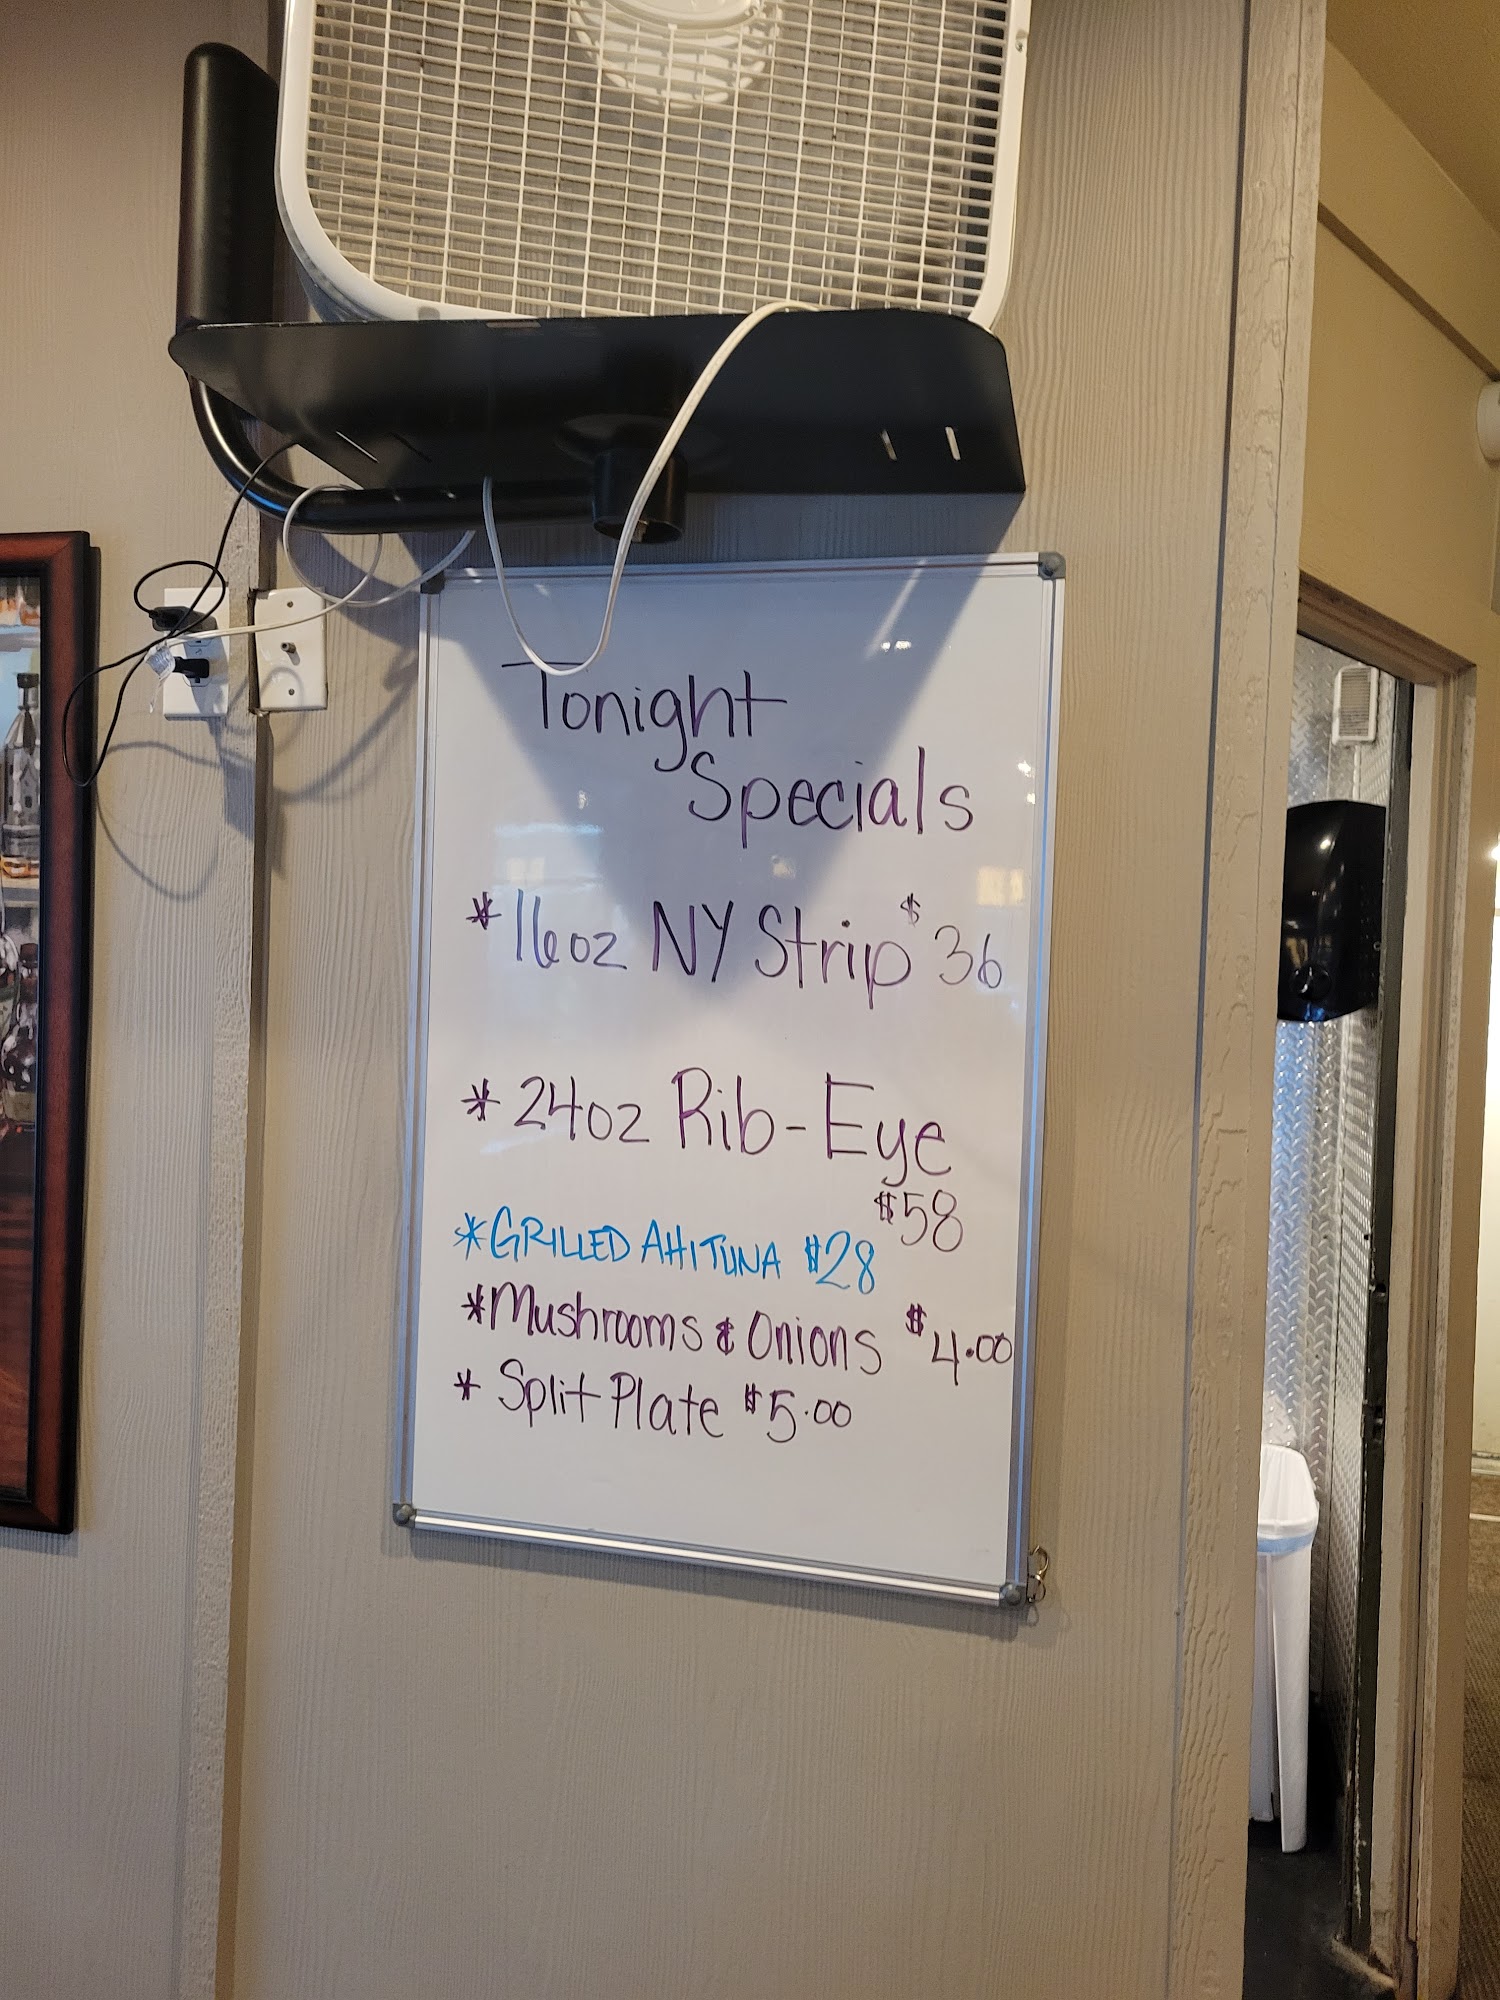 Tonight
Specials
* 16oz NY Strip $36
* 24oz Rib-Eye
$58
* GRILLED AHI TUNA $28
* Mushrooms & Onions $4.00
* Split Plate $5.00